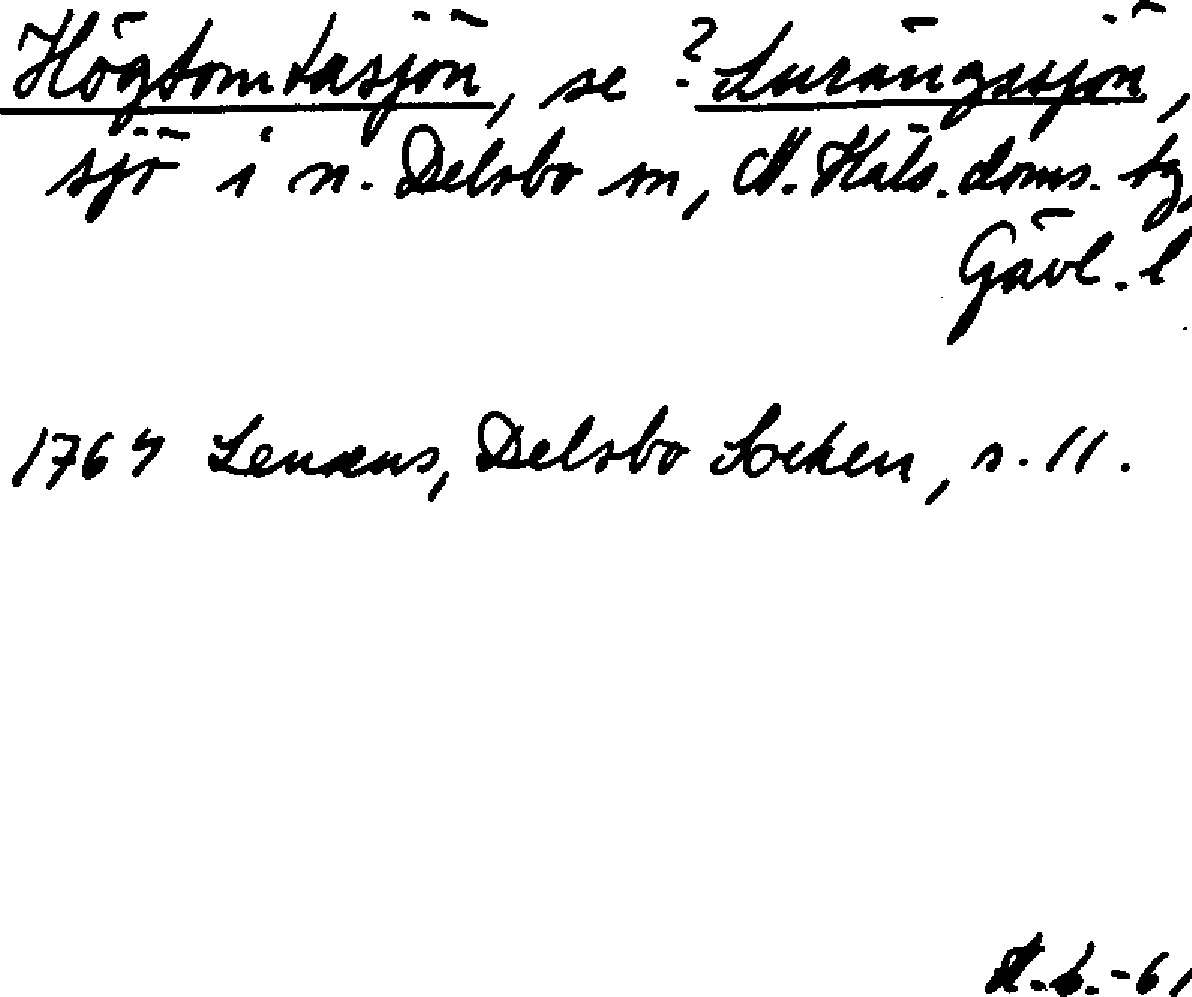 Högtomtasjön, se ? Lurängssjön,
sjö i n. Delsbo sn, N. Häls. doms. tg,
Gävl. l
1764 Lenæus, Delsbo Socken, s. 11.
-61